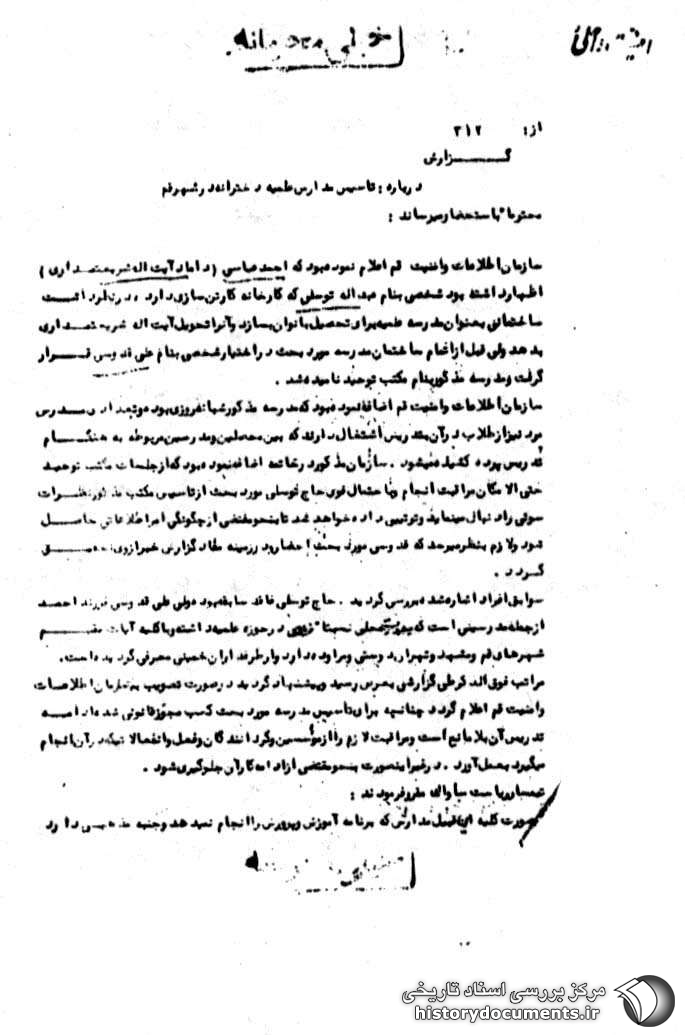 خیلی محرمانه
از: ۳۱۲
گــــزارش
درباره: تاسیس مدارس علمیه دخترانه در شهر قم
محترما" باستحضار میرساند:
سازمان اطلاعات وامنیت قم اعلام نموده بود که احمد عباسی (داماد آیت اله شریعتمداری)
اظهار داشته بود شخصی بنام عبداله توسلی که کارخانه کارتن سازی دارد در نظر داشت
ساختمانی بعنوان مدرسه علمیه برای تحصیل بانوان بسازد وآنرا تحویل آیت اله شریعتمداری
بدهد ولی قبل از اتمام ساختمان مدرسه مورد بحث در اختیار شخصی بنام علی قدوسی قــرار
گرفت ومدرسه مذکور بنام مکتب توحید نامیده شد.
سازمان اطلاعات وامنیت قم اضافه نموده بود که مدرسه مذکور شبانه روزی بوده وتعدادی مدرس
مرد نیز از طلاب در آن بتدریس اشتغال دارند که بین محصلین ومدرسین مربوطه به هنگــام
تدریس پرده کشیده میشود. سازمان مذکور در خاتمه اضافه نموده بود که از جلسات مکتب توحید
حتی الامکان مراقبت انجام وبا احتمال قوی حاج توسلی مورد بحث از تاسیس مکتب مذکور نظرات
سوئی را دنبال مینماید وترتیبی داده خواهد شد تا بنحو مقتضی از چگونگی امر اطلاعاتی حاصل
شود ولازم بنظر میرسد که قدوسی مورد بحث احضار و در زمینه مفاد گزارش خبر از وی تحقیــق
گردد.
سوابق افراد اشاره شده بررسی گردید. حاج توسلی فاقد سابقه بوده ولی علی قدوسی فرزند احمد
از جمله مدرسینی است که محلی نسبتا" در حوزه علمیه داشته وبا کلیه آیات مقیــم
شهرهای قم ومشهد وتهران دوستی ومراوده دارد واز طرفداران خمینی معرفی گردیده است.
مراتب فوق الذکر طی گزارشی بعرض رسید وپیشنهاد گردید در صورت تصویب به سازمان اطلاعات
وامنیت قم اعلام گردد چنانچه برای تاسیس مدرسه مورد بحث کسب مجوز قانونی شده ادامــه
تدریس آن بلامانع است ومراقبت لازم را از موسسین وگردانندگان وفعل وانفعالاتیکه در آن انجام
میگیرد بعمل آورد. در غیر اینصورت بنحو مقتضی از ادامه کار آن جلوگیری شود.
تیمسار ریاست ساواک مقرر فرمودند:
صورت کلیه این قبیل مدارس که برنامه آموزش وپرورش را انجام نمیدهد وجنبه مذهبی دارد
مرکز بررسی اسناد تاریخی
historydocuments.ir